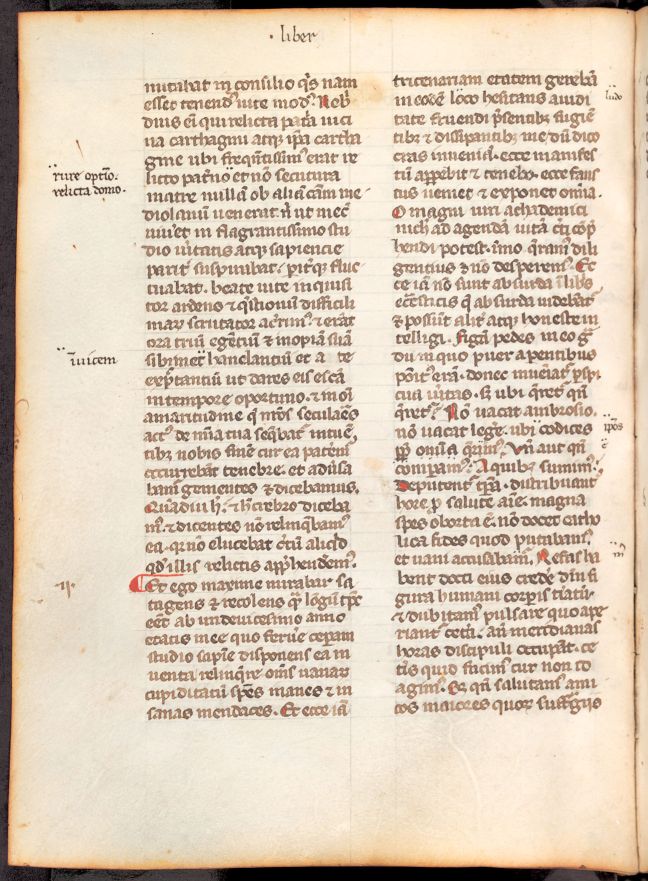 · liber
nutabat in consilio q̄s nam
esset tenend⁹ uite mod⁹. Neb̾
dius eī qui relicta pat̾a uici
na carthagini atq; ip̄a cartha
gine ubi freq̄ntissim⁹ erat re
licto pat̾no et nō secutura
matre nullā ob aliā cām me
diolanum uenerat. n̄ ut mecū
uiu̾et in flagrantissimo stu
dio ū̾itatis atq; sapiencie
parit̾ suspirabat. pit̾q; fluc
tuabat. beate uite inquisi
tor ardens & q̄stionū difficili
mar̄ scrutator ac̾rim⁹. & erāt
ora triū egentiū & inopiā suā
sibimet hanelantiū et a te
exp̄tantiū ut dares eis escā
in tempore oportuno. & in oī
amaritudine q̄ nr̄os seculares
act⁹ de mīa tua seq̄bat̾ intuē
tib; nobis finē cur ea patem̾
occurrebāt tenebre. et au̾sa
bam̾ gementes & dicebamus.
Quādiu h̾. & h̾ crebro diceba
m⁹. & dicentes nō relinq̄bam⁹
ea. q̾ nō elucebat c̾tū aliqd
qd̾ illis relictis app̾hendem⁹.
Et ego maxime mirabar sa
tagens & recolens q̄ longū tp̄s
eēt ab undeuicesimo anno
etatis mee quo feru̾e cep̾am
studio sapīe disponens ea in
uenta relinq̾re om̄s uanar̄
cupiditatū sp̄es inanes & in
sanas mendaces. Et ecce iā
rure optio.
relicta domo.
īuicem
·II·
tricenariam etatem gerebā
in eodē loco hesitans auidi
tate fruendi p̾sentib; fugiē
tib; & dissipantib; me dū dico
cras inueniā. ecce manifes
tū appebit & tenebo. ecce faus
tus ueniet & exponet omīa.
O magni uiri achademici
nich̾ ad agendā uitā c̾ti cop̄
hendi potest. īmo q̄ram⁹ dili
gentius & nō desperem⁹. Ec
ce iā nō sunt absurda ī lib̾s
ecc̄sticis q̄ absurda uidebāt̾
& possūt alit̾ atq; honeste in
telligi. figā pedes in eo g̾
du in quo puer a pentibus
poīt⁹ erā. donec inueniat̾ p̾spi
cua ū̾itas. S; ubi q̄ret̾ qn̄
q̄ret̾. Nō uacat ambrosio.
nō uacat lege̾. ubi codices
ip̄os oīa q̄rim⁹. Vn̄ aut qn̄
comparam⁹. A quib; sumim⁹.
Deputent̾ tp̄a. distribuant̾
hore p̄ salute aīe. magna
spes oborta ē. nō docet catho
lica fides quod putabam⁹.
et uani accusabam⁹. Nefas ha
bent docti eius crede̾ dm̄ fi
gura humani corp̾is t̾iatū
& dubitam⁹ pulsare quo ape
riant̾ cet̾a. an̄ meridianas
horas discipuli occupāt. ce
t̾is quid facim⁹ cur non id
agim⁹. S; qn̄ salutam⁹ ami
cos maiores quor̄ suffragiis
ludo
ip̄os
ē
m̄